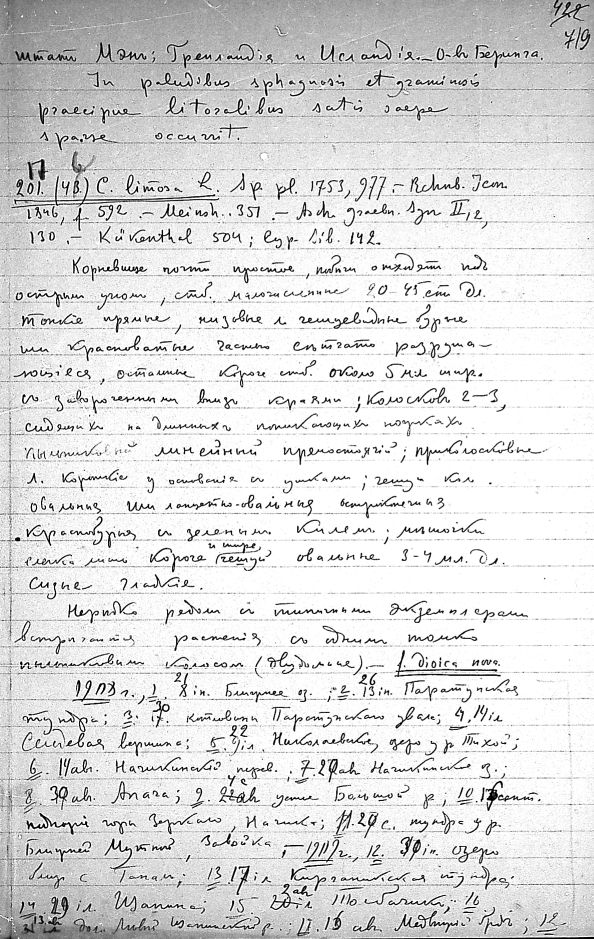 422
719
штатъ Мэнъ; Гренландія и Исландія. – О-въ Беринга.
In paludibus sphagnosis et graminosis
praecipue litoralibus satis saepe
sparse occurrit.
201. (48) C. limosa L. Sp. pl. 1753, 977. – Rchnb. Icon
1846, f. 592. – Meinsh. 351. – Asch. Graebn. Syn II,2,
130. – Kükenthal 504; Cyp. Sib. 142.
Корневище почти простое, побѣги отходятъ подъ
острымъ угломъ, стб. малочисленные 20-45 cm дл.
тонкіе прямые, низовые л. чешуевидные бурые
или красноватые частью сѣтчато разруша-
ющіеся, остальные короче стб. около 5 мл. шир.
съ завороченными внизъ краями; колосковъ 2–3,
сидящихъ на длинныхъ поникающихъ ножкахъ
пыльниковый линейный прямостоячій; приколосковые
л. короткіе у основанія съ ушками; чешуи кол.
овальныя или ланцетно-овальныя
краснобурыя съ зеленымъ килемъ; мѣшочки
слегка лишь короче и шире чешуй овальные 3-4 мл. дл.
сизые гладкіе.
Нерѣдко рядомъ съ типичными экземплярами
встрѣчаются растенія съ однимъ только
пыльниковымъ колосомъ (двудомные). – f. dioica nova.
1908 г., 1. 21 in. Ближнее оз.; 2. 26 in. Паратунская
тундра; 3. 30 котловина Паратунскаго увала; 4. 14 il
Сельдевая вершина; 5. 22 il. Николаевское, озеро у р. Тихой;
6. 14 ав. Начикинскій перев.; 7. 20 ав Начикинское оз.;
8. 30 ав. Апача; 9. ав устье Большой р.; 10. сент.
подножіе горы Зеркало, Начика; 11. 20 с. тундра у р.
Ближней Мутной, Завойка; – 1909 г., 12. 30 in. озеро
близъ с. ; 13. 17 il Кирганикская тундра;
14 29 il Щапина; 15 2 ав Толбачикъ; 16
13 ав дол. Щапинской р.; 17. 16 ав. Медвѣжій ; 18